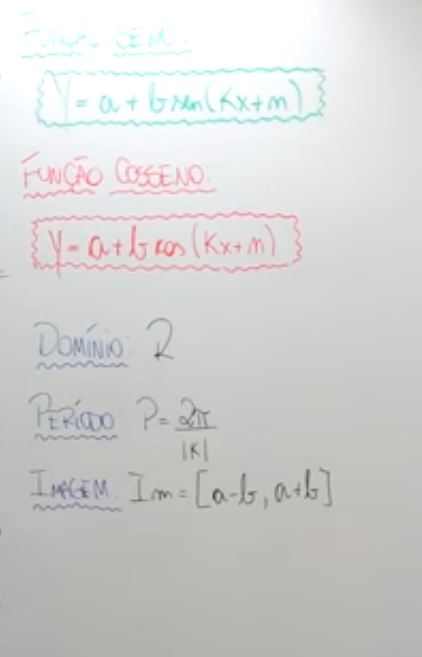 FUNÇÃO SENO:
Y = a + b sen(Kx+m)
FUNÇÃO COSSENO:
Y = a + b cos(Kx+m)
DOMÍNIO: R
PERÍODO: P = 2π/|K|
IMAGEM: Im = [a-b, a+b]